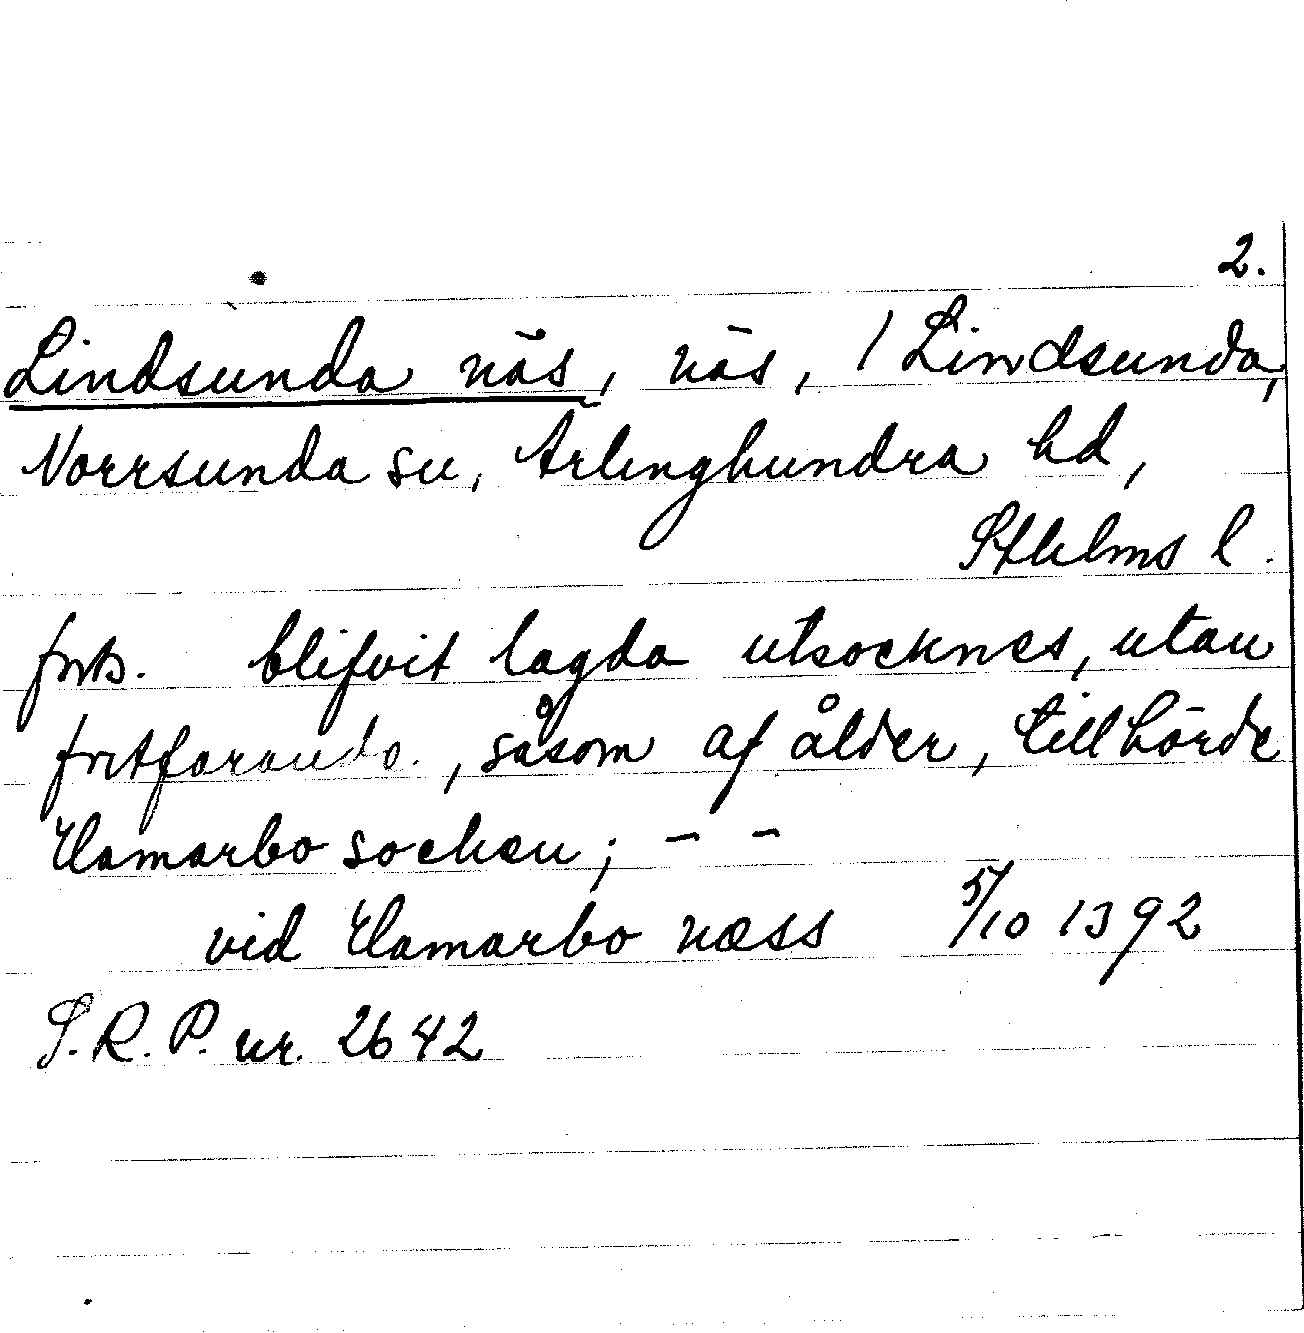 2.
Lindsunda näs, näs, / Lindsunda,
Norrsunda sn, Ärlinghundra hd,
Sthlms l.
forts. blifvit lagda utsocknes, utan
fortfarande, såsom af ålder, tillhörde
Hamarbo socken; – –
vid Hamarbo næss 5/10 1392
S.R.P. nr. 2642